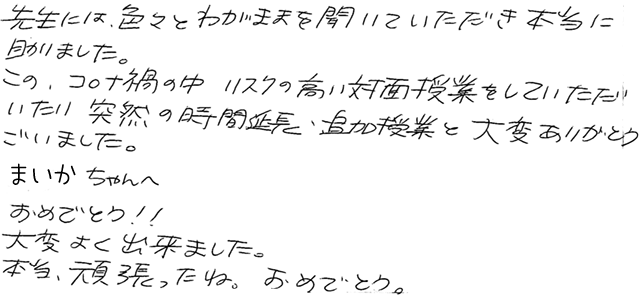 先生には、色々とわがままを聞いていただき本当に
助かりました。
この、コロナ禍の中 リスクの高い対面授業をしていただ
いたり 突然の時間延長、追加授業と 大変ありがとう
ございました。
まいかちゃんへ
おめでとう!!
大変よく出来ました。
本当、頑張ったね。おめでとう。